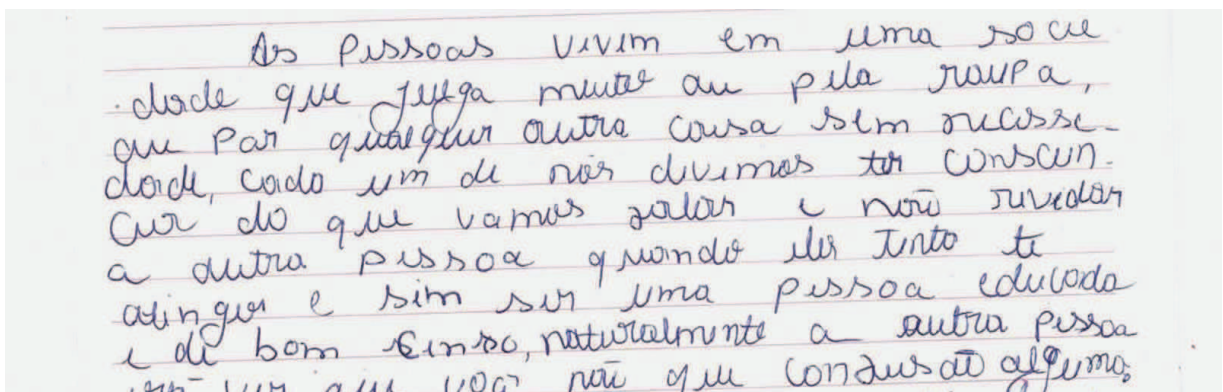 As pessoas vivem em uma socie
dade que julga muito ou pela roupa,
ou por qualquer outra cousa sem necesse-
dade, cada um de nós devemos ter conscien-
cia do que vamos falar e não revidar
a outra pessoa quando ela tenta te
atingir e sim ser uma pessoa educada
e de bom senso, naturalmente a outra pessoa
ver que você não que confusão alguma,